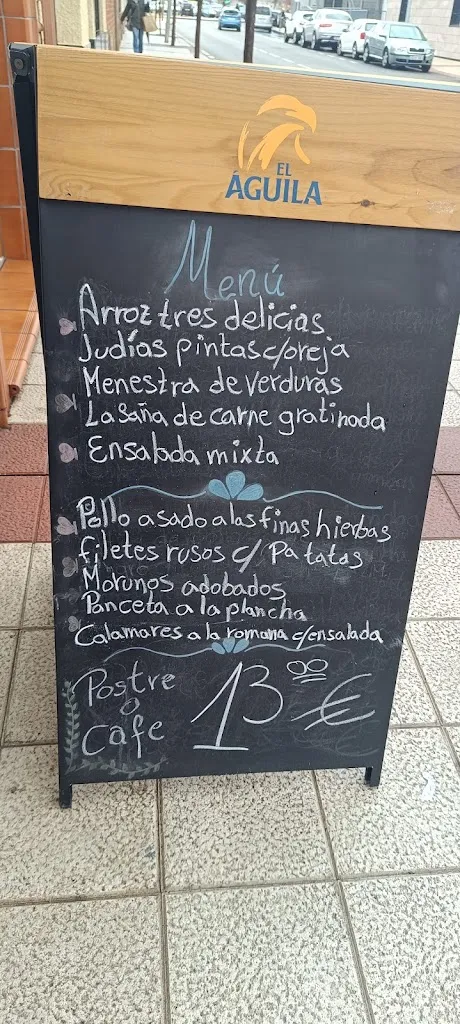 EL
ÁGUILA
Menú
Arroz tres delicias
Judías pintas c/oreja
Menestra de verduras
Lasaña de carne gratinada
Ensalada mixta
Pollo asado a las finas hierbas
filetes rusos c/ Patatas
Morunos adobados
Panceta a la plancha
Calamares a la romana c/ensalada
Postre
o
Cafe
13 00 €